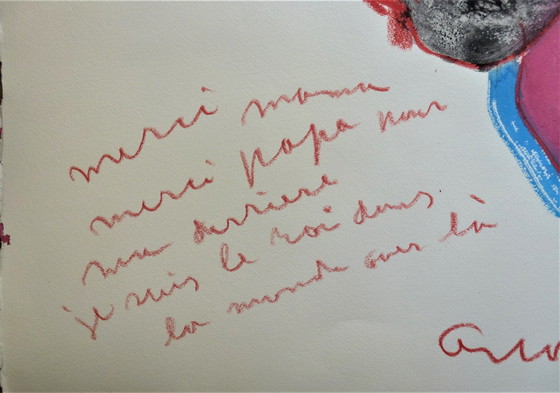 merci mama
merci papa pour
mu derriere
je suis le roi dans
la monde aver là